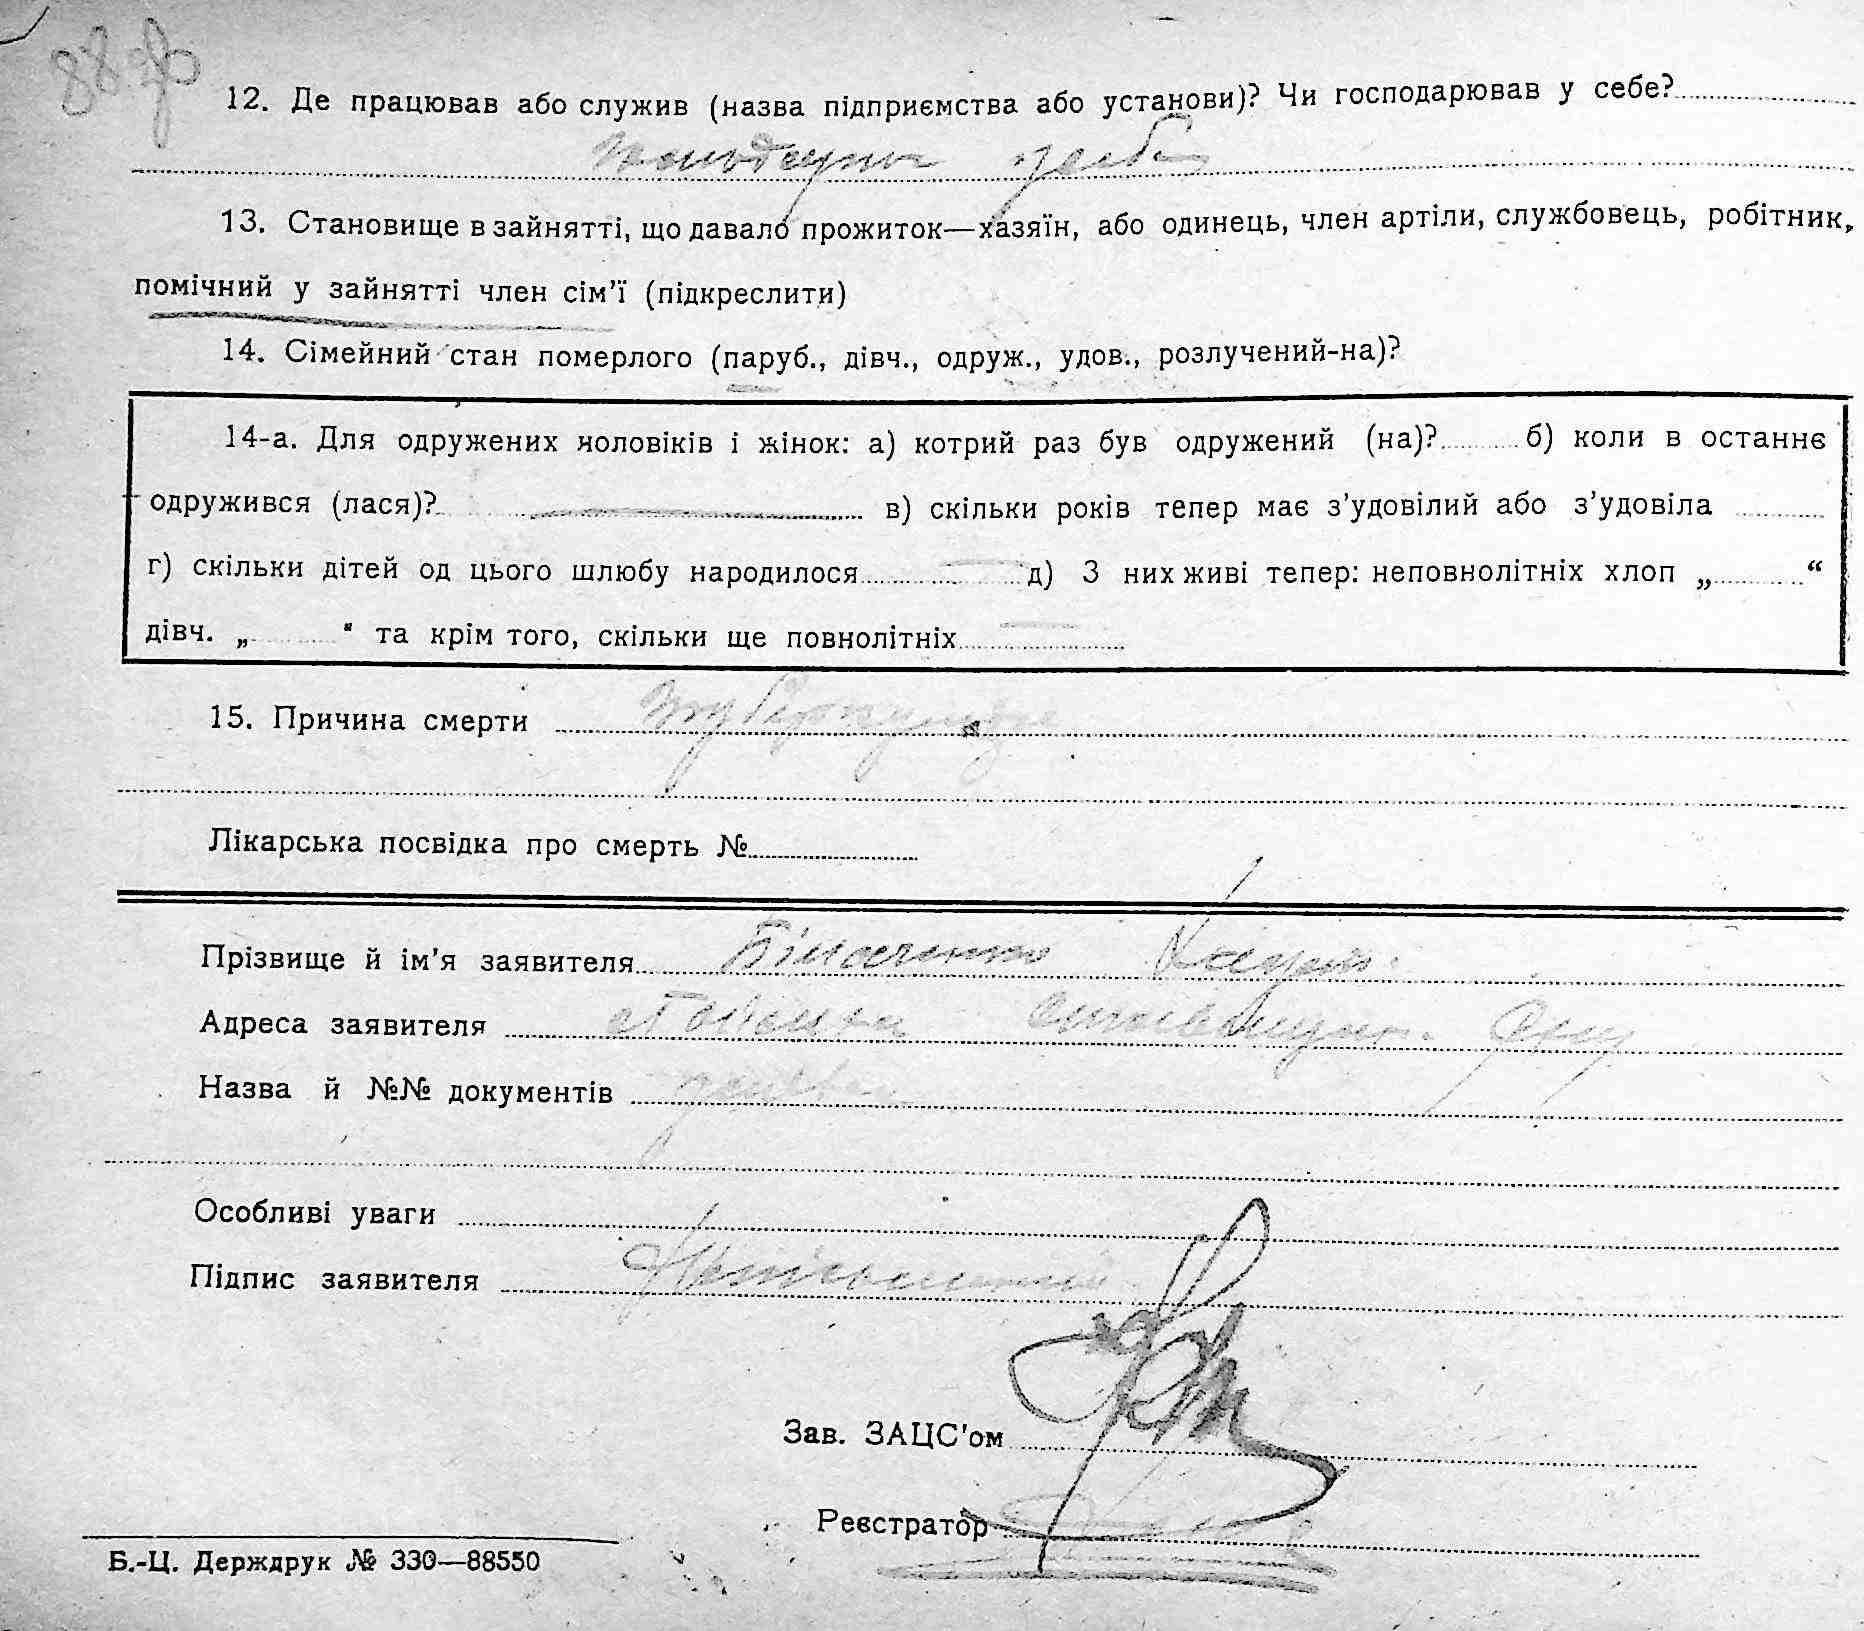 12. Де працював або служив (назва підприємства або установи)? Чи господарював у себе?
13. Становище в зайнятті, що давало прожиток—хазяїн, або одинець, член артіли, службовець, робітник,
помічний у зайнятті член сім’ї (підкреслити)
14. Сімейний стан померлого (паруб., дівч., одруж., удов., розлучений-на)?
14-а. Для одружених чоловіків і жінок: а) котрий раз був одружений (на)? б) коли в останнє
одружився (лася)? в) скільки років тепер має з’удовілий або з’удовіла
г) скільки дітей од цього шлюбу народилося д) З них живі тепер: неповнолітніх хлоп „ “
дівч. „ “ та крім того, скільки ще повнолітніх
15. Причина смерти туберкульоз
Лікарська посвідка про смерть №
Прізвище й ім’я заявителя
Адреса заявителя
Назва й №№ документів
Особливі уваги
Підпис заявителя
Зав. ЗАЦС'ом
Реєстратор
Б.-Ц. Держдрук № 330—88550